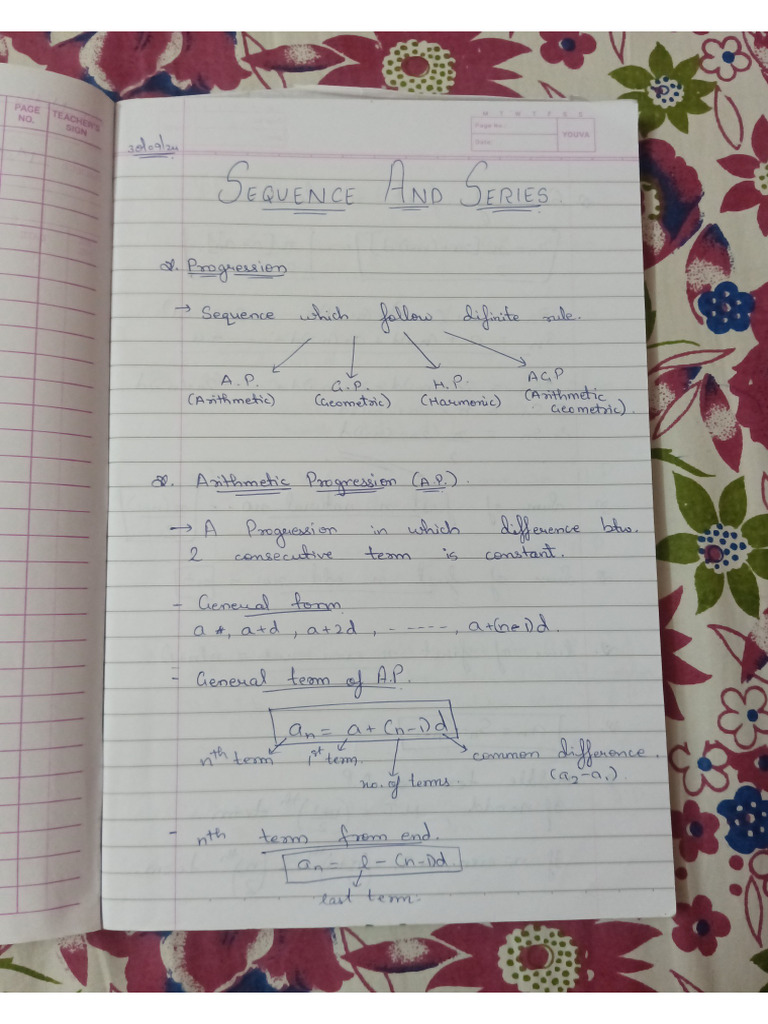 PAGE NO.
TEACHER'S SIGN
M T W T F S S
Page No.:
Date:
YOUVA
30/09/24
SEQUENCE AND SERIES
Progression
→ Sequence which follow difinite rule.
A.P. G.P. H.P. AGP
(Arithmetic) (Geometric) (Harmonic) (Arithmetic Geometric).
Arithmetic Progression (A.P.).
→ A Progression in which difference btw.
2 consecutive term is constant.
- General form
a, a+d, a+2d, -----, a+(n-1)d.
- General term of A.P.
aₙ = a + (n-1)d
nth term 1st term. no. of terms. common difference.
(a₂-a₁).
- nth term from end.
aₙ = l - (n-1)d.
last term.